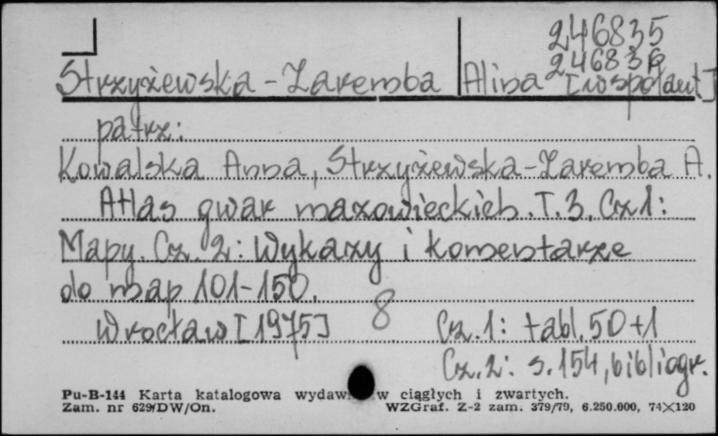 246835
246836
Strzyżewska-Zaremba Alina [współaut]
patrz:
Kowalska Anna, Strzyżewska-Zaremba A.
Atlas gwar mazowieckich. T. 3. Cz 1:
Mapy. Cz. 2: Wykazy i komentarze
do map 101-150.
Wrocław [1975] 8 Cz. 1: tabl. 50+1
Cz. 2: s. 154, bibliogr.
Pu-B-144 Karta katalogowa wydaw w ciągłych i zwartych.
Zam. nr 629/DW/On. WZGraf. Z-2 zam. 379/79, 6.250.000, 74×120